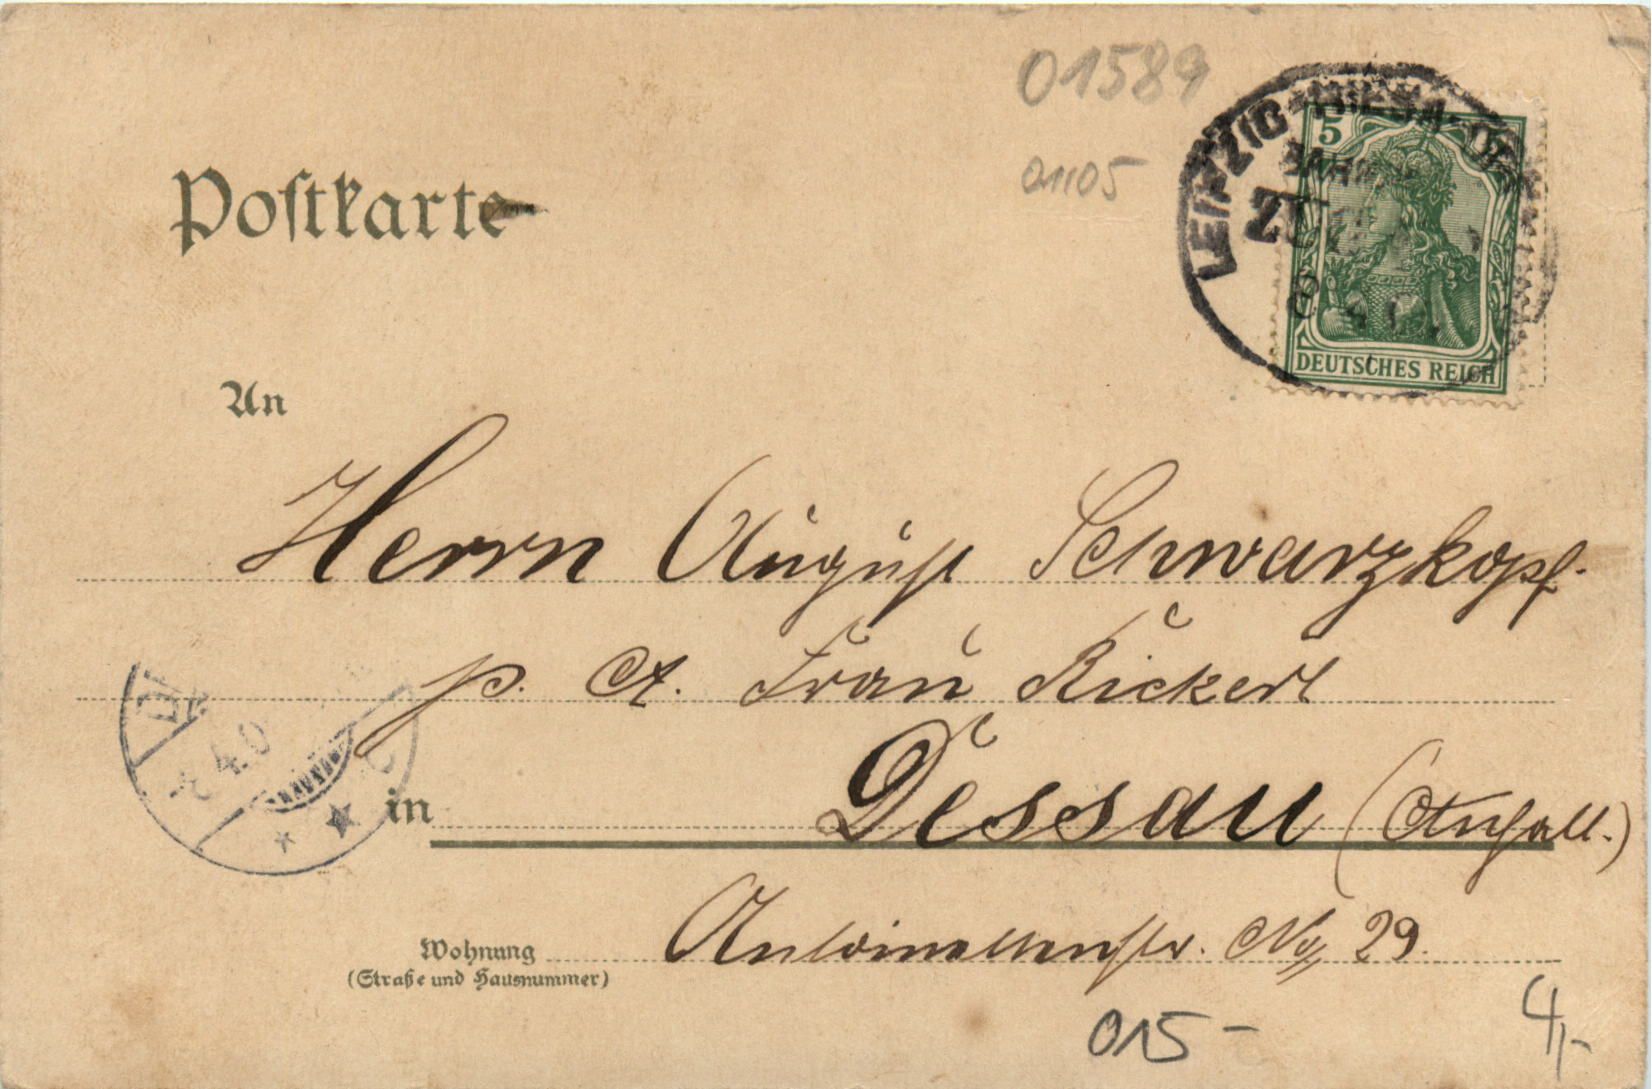 01589
01105
LEIPZIG-RIESA-
BAHN
ZUG
5
DEUTSCHES REICH
Postkarte
An
Herrn August Schwarzkopf.
p. A. Frau Rickert
4.0
in Dessau (Anhalt.)
Wohnung Antoinettenstr. No 29.
(Straße und Hausnummer)
015-
4,-